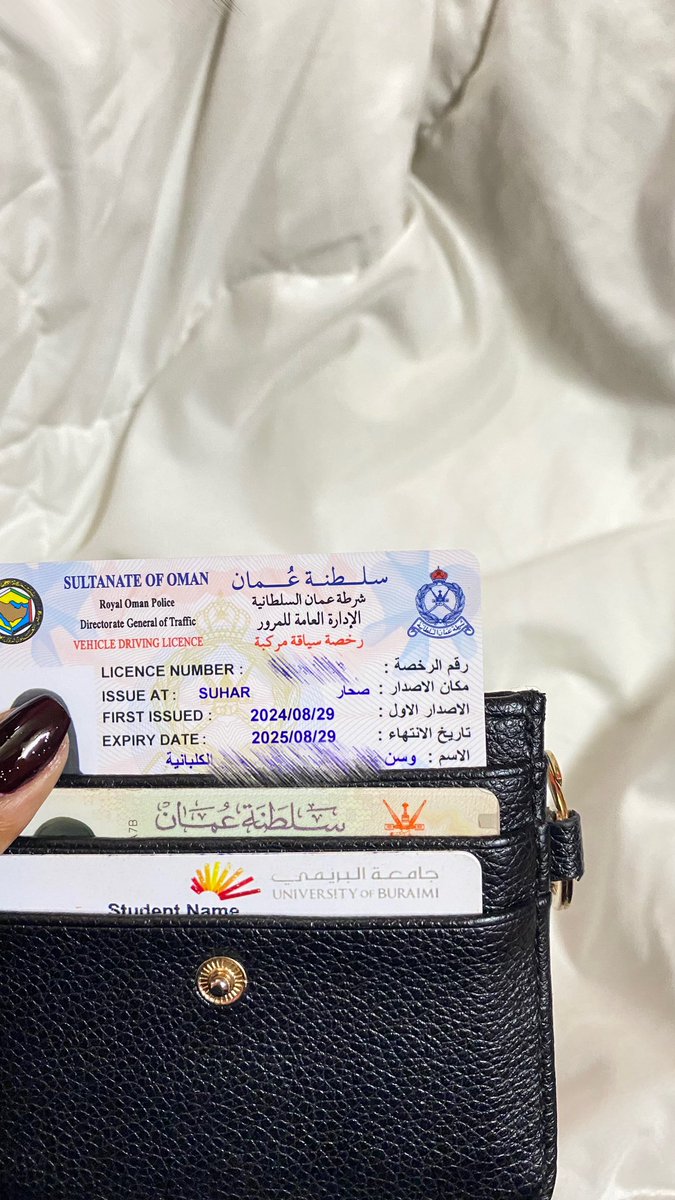 SULTANATE OF OMAN سلطنة عُمان
Royal Oman Police شرطة عمان السلطانية
Directorate General of Traffic الإدارة العامة للمرور
VEHICLE DRIVING LICENCE رخصة سياقة مركبة
LICENCE NUMBER : رقم الرخصة :
ISSUE AT : SUHAR صحار مكان الاصدار :
FIRST ISSUED : 2024/08/29 الاصدار الاول :
EXPIRY DATE : 2025/08/29 تاريخ الانتهاء :
الاسم : وسن الكلبانية
سلطنة عُمان
A7B
جامعة البريمي
UNIVERSITY OF BURAIMI
Student Name